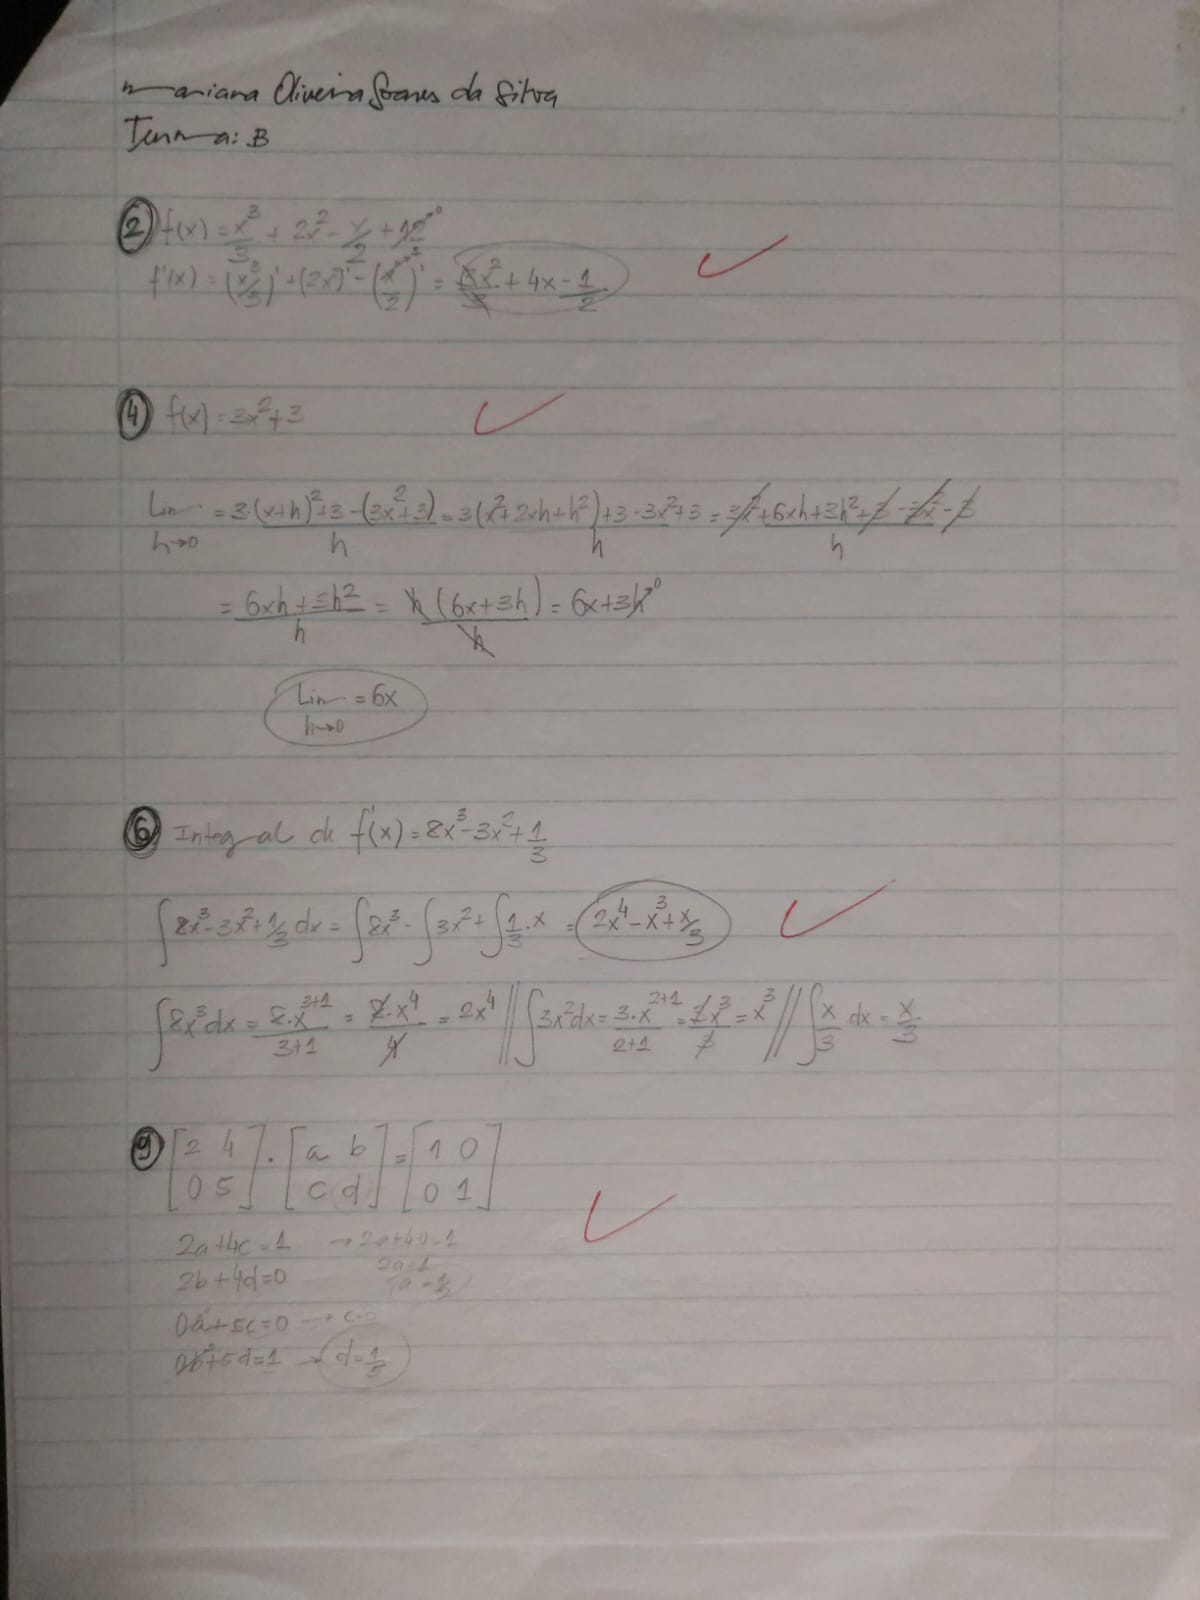 Mariana Oliveira Soares da Silva
Turma: B
2 f(x) = x³/3 + 2x² - x/2 + 12→0
f'(x) = (x³/3)' + (2x²)' - (x/2)' = 3x²/3 + 4x - 1/2
4 f(x) = 3x²+3
Lim h→0 = 3·(x+h)²+3-(3x²+3)/h = 3(x²+2xh+h²)+3-3x²+3/h = 3x²+6xh+3h²+3-3x²-3/h
= 6xh+3h²/h = h(6x+3h)/h = 6x+3h→0
Lim h→0 = 6x
6 Integral de f'(x) = 8x³-3x²+1/3
∫8x³-3x²+1/3 dx = ∫8x³ - ∫3x² + ∫1/3·x = 2x⁴-x³+x/3
∫8x³dx = 8·x³⁺¹/3+1 = 8·x⁴/4 = 2x⁴ // ∫3x²dx = 3·x²⁺¹/2+1 = 3x³/3 = x³ // ∫x/3 dx = x/3
9 [2 4] · [a b] = [1 0]
[0 5] [c d] [0 1]
2a+4c=1 → 2a+4·0=1
2b+4d=0 2a=1
a=1/2
0a+5c=0 → c=0
0b+5d=1 → d=1/5